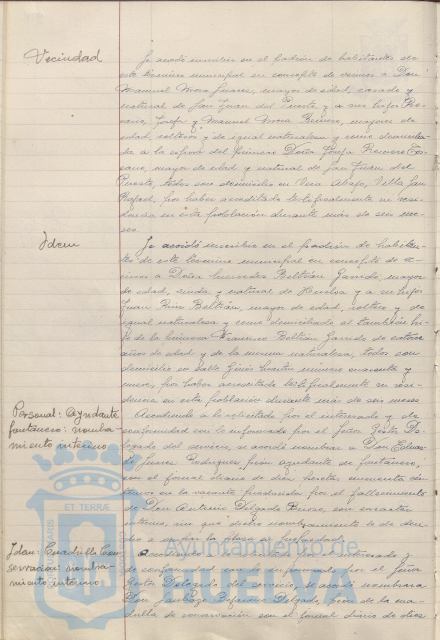 Vecindad
Se acordó inscribir en el padrón de habitantes de
este término municipal en concepto de vecinos a Don
Manuel Mora Suarez, mayor de edad, casado y
natural de San Juan del Puerto y a sus hijos
Josefa y Manuel Mora Romero, mayores de
edad, solteros y de igual naturaleza y como
a la esposa del primero Doña Josefa Romero
mayor de edad y natural de San Juan del
Puerto, todos con domicilio en Vera Abajo, Villa San
Rafael, por haber acreditado
en esta población durante más de seis me-
ses.
Idem
Se acordó inscribir en el padrón de habitan-
tes de este término municipal en concepto de ve-
cinos a Doña Beltrán Garrido, mayor
de edad, viuda y natural de Huelva y a su hijo
Juan Beltrán, mayor de edad, soltero y de
igual naturaleza y como domiciliado al también hi-
jo de la Francisco Beltrán Garrido de catorce
años de edad y de la misma naturaleza, todos con
domicilio en calle Ginés Martín número cuarenta y
nueve, por haber acreditado
en esta población durante más de seis meses.
Personal: Ayudante
fontanero: nombra-
miento interino
Accediendo a lo solicitado por el interesado y de
conformidad con lo informado por el Señor Gestor De-
legado del servicio, se acordó nombrar a Don
Suarez Rodriguez, peón ayudante de fontanero,
con el jornal diario de diez pesetas cincuenta cén-
timos en la vacante producida por el fallecimiento
de Don Antonio Delgado con carácter
interino, sin que dicho nombramiento le dé dere-
cho a
Idem: Cuadrilla Con-
servación: nombra-
miento interino
Accediendo a lo solicitado por el interesado y
de conformidad con lo informado por el Señor
Gestor Delegado del servicio, se acordó nombrar a
Don Delgado, peón de la cua-
drilla de conservación con el jornal diario de
ET TERRÆ
Ayuntamiento de
HUELVA